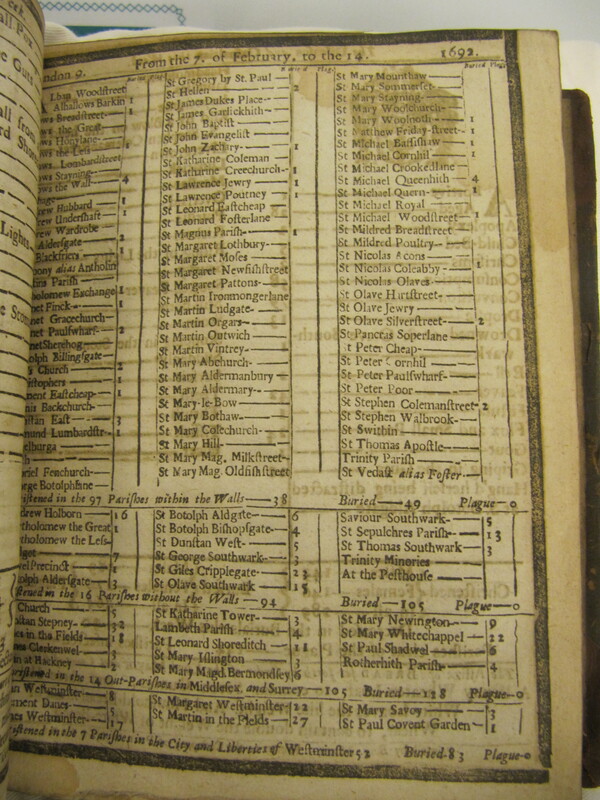 ndon 9. From the 7. of February, to the 14. 1692.
Buried Plag.
Alban Woodstreet
Alhallows Barkin 1
ows Breadstreet 1
ows the Great 1
ows Honylane
ows the Less 1
ows Lombardstreet
ows Stayning
ows the Wall 4
rew Hubbard 1
rew Undershaft 1
rew Wardrobe
Aldersgate 2
Blackfriers 1
ony alias Antholin
tins Parish
tholomew Exchange 1
et Finck 1
net Gracechurch
et Paulswharf 2
netSherehog
olph Billingsgate
s Church 2
istophers 1
ment Eastcheap 1
nis Backchurch
stan East 3
mund Lumbardstr 1
elburga
riel Fenchurch
rge Botolphlane
St Gregory by St. Paul
St Hellen 2
St James Dukes Place
St James Garlickhith
St John Baptist
St John Evangelist
St John Zachary 1
St Katharine Coleman
St Katharine Creechurch 1
St Lawrence Jewry 1
St Lawrence Poutney 1
St Leonard Eastcheap
St Leonard Fosterlane
St Magnus Parish 1
St Margaret Lothbury
St Margaret Moses
St Margaret Newfishstreet
St Margaret Pattons
St Martin Ironmongerlane
St Martin Ludgate
St Martin Orgars
St Martin Outwich
St Martin Vintrey 1
St Mary Abchurch
St Mary Aldermanbury
St Mary Aldermary
St Mary-le-Bow
St Mary Bothaw
St Mary Colechurch
St Mary Hill
St Mary Mag. Milkstreet
St Mary Mag. Oldfishstreet
St Mary Mounthaw
St Mary Sommerset
St Mary Stayning
St Mary Woolchurch
St Mary Woolnoth 1
St Matthew Friday-street 1
St Michael Bassishaw 1
St Michael Cornhil 1
St Michael Crookedlane
St Michael Queenhith 4
St Michael Quern 1
St Michael Royal
St Michael Woodstreet 1
St Mildred Breadstreet
St Mildred Poultry
St Nicolas Acons
St Nicolas Coleabby 1
St Nicolas Olaves
St Olave Hartstreet
St Olave Jewry
St Olave Silverstreet 2
St Pancras Soperlane
St Peter Cheap
St Peter Cornhil
St Peter Paulswharf
St Peter Poor
St Stephen Colemanstreet 2
St Stephen Walbrook
St Swithin
St Thomas Apostle
Trinity Parish
St Vedast alias Foster
istened in the 97 Parishes within the Walls 38 Buried 49 Plague 0
drew Holborn 16
tholomew the Great 1
tholomew the Less
get 7
elPrecinct 1
olph Aldersgate 3
St Botolph Aldgate 6
St Botolph Bishopsgate 4
St Dunstan West 5
St George Southwark 3
St Giles Cripplegate 23
St Olave Southwark 15
Saviour Southwark 5
St Sepulchres Parish 13
St Thomas Southwark 3
Trinity Minories
At the Pesthouse
stened in the 16 Parishes without the Walls 94 Buried 105 Plague 0
Church 5
stan Stepney 32
es in the Fields 18
es Clerkenwel 3
n at Hackney 2
St Katharine Tower 3
Lambeth Parish 4
St Leonard Shoreditch 11
St Mary Islington 3
St Mary Magd. Bermondsey 6
St Mary Newington 9
St Mary Whitechappel 22
St Paul Shadwel 6
Rotherhith Parish 4
ristened in the 14 Out-Parishes in Middlesex and Surrey 105 Buried 128 Plague 0
n Westminster 8
ment Danes 5
mes Westminster 17
St Margaret Westminster 22
St Martin in the Fields 27
St Mary Savoy 3
St Paul Covent Garden 1
istened in the 7 Parishes in the City and Liberties of Westminster 52 Buried 83 Plague 0